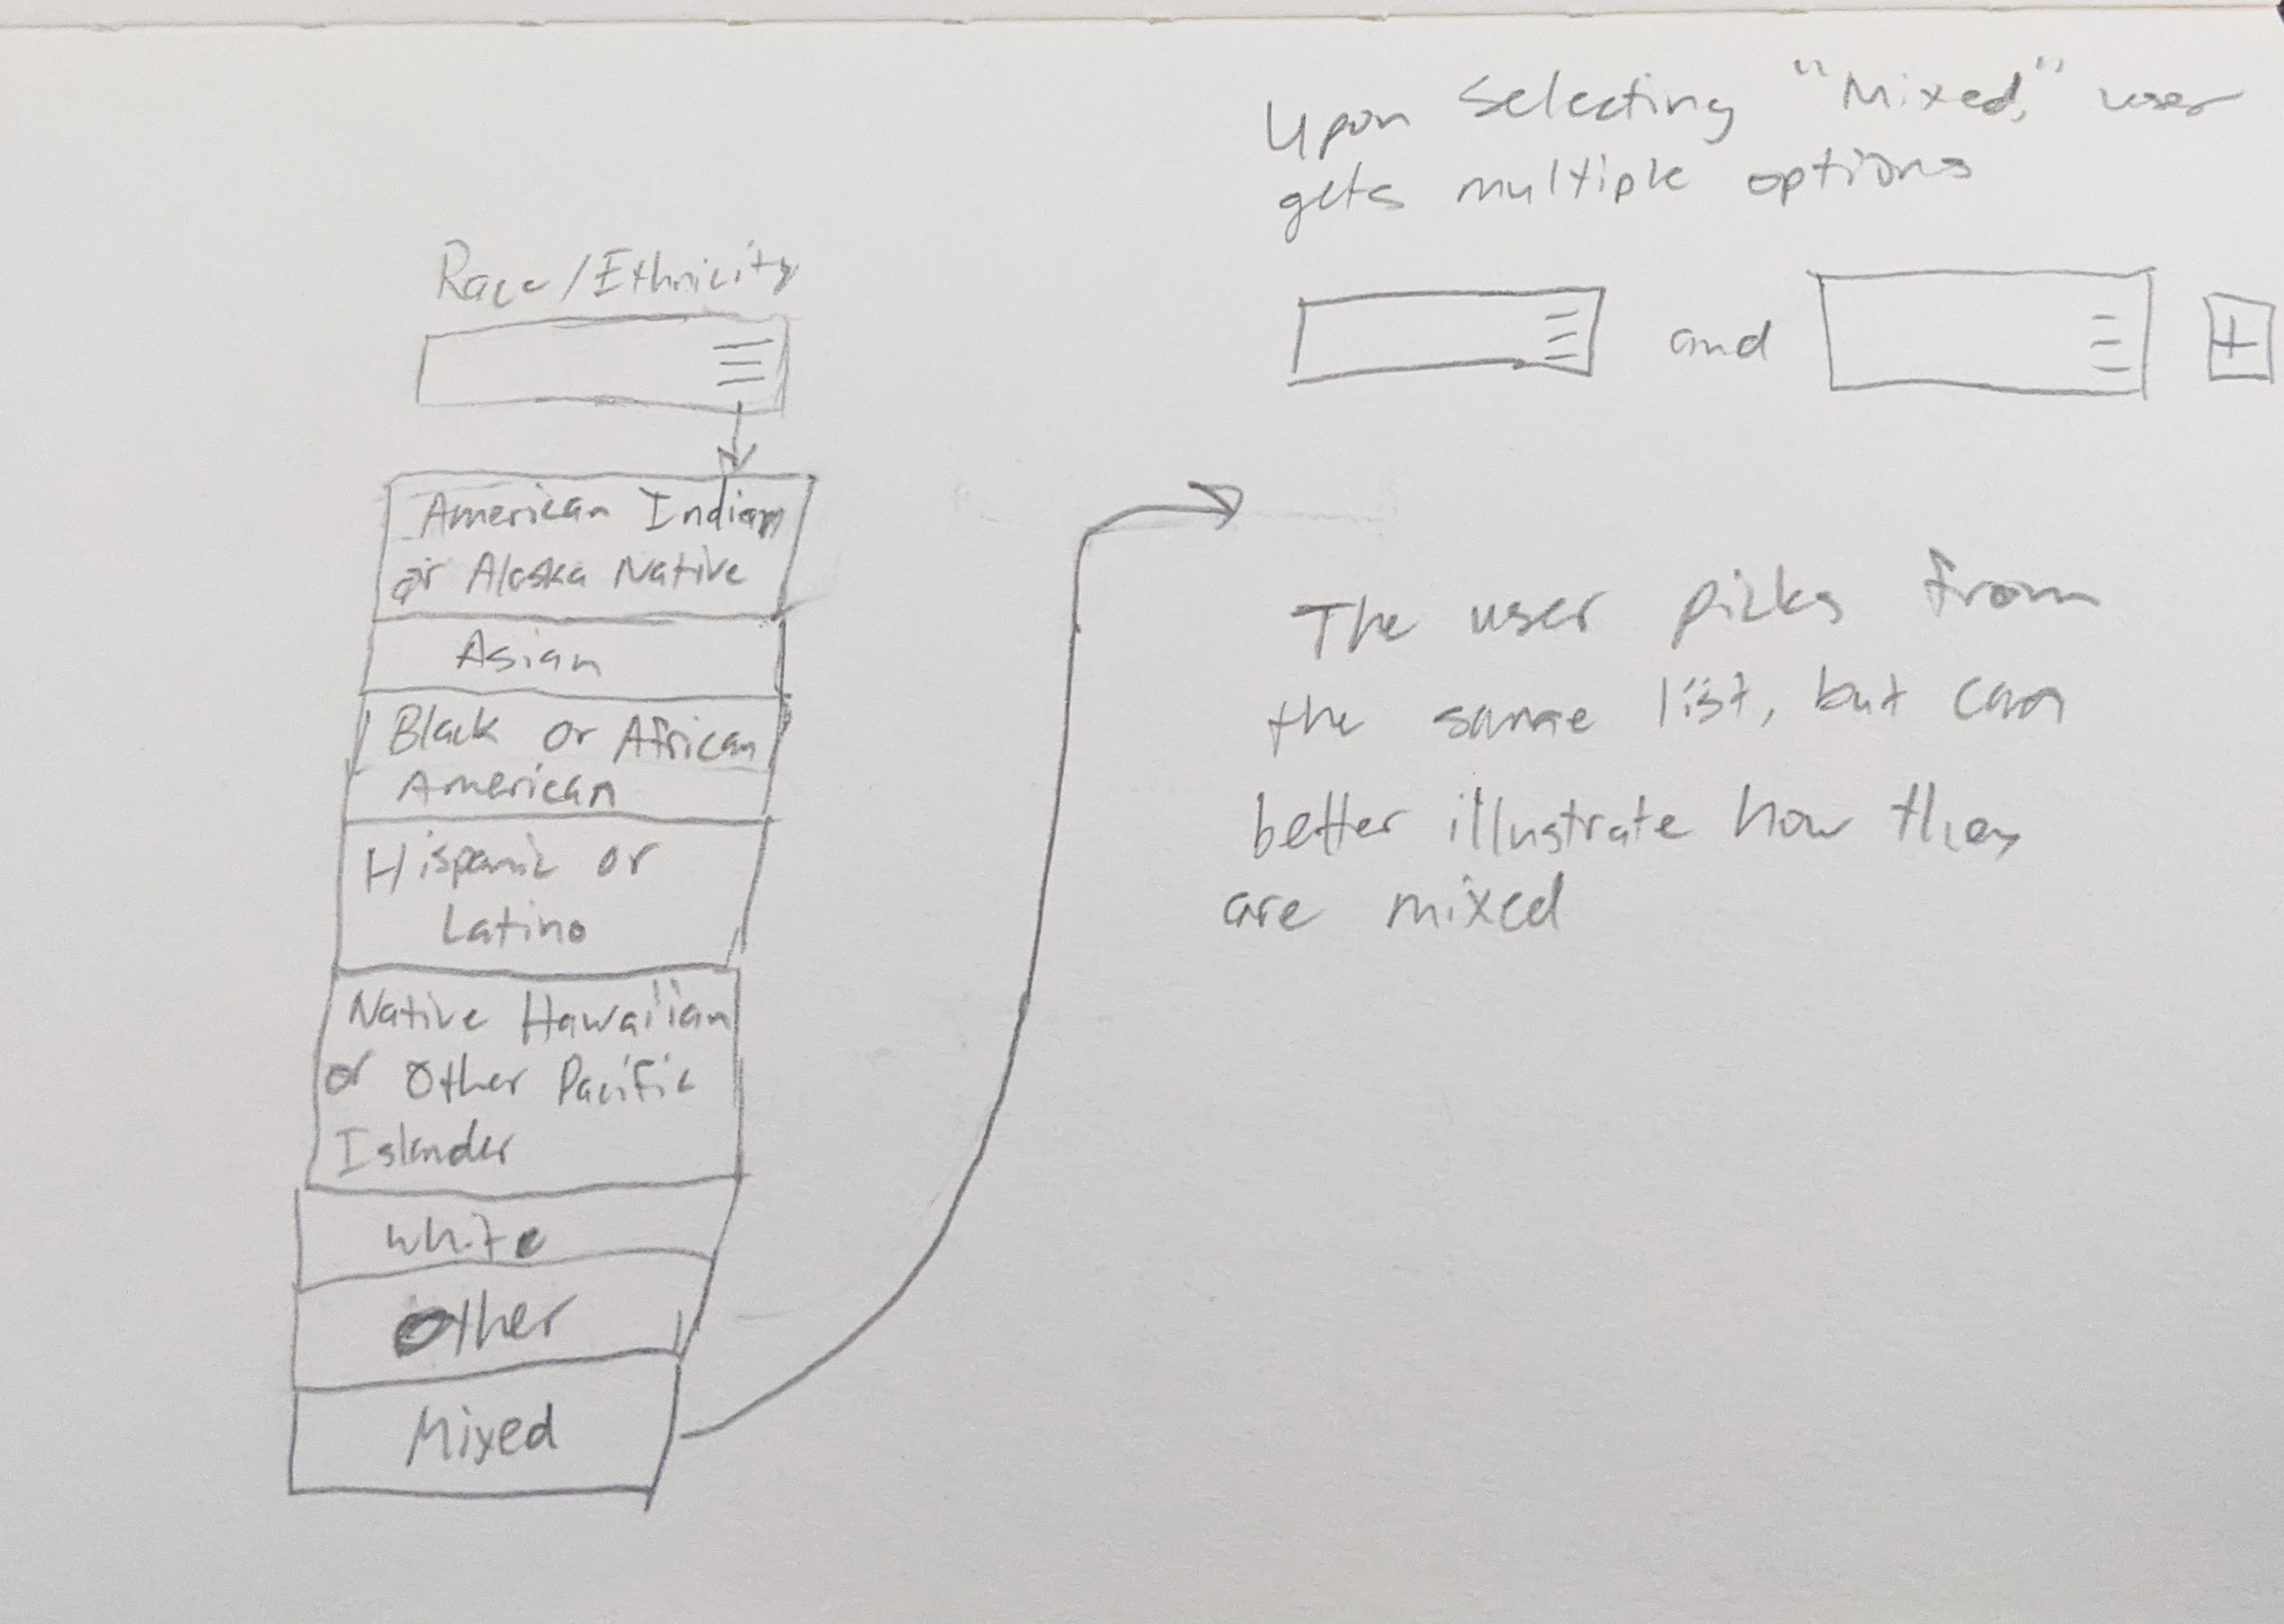 Race/Ethnicity
American Indian
or Alaska Native
Asian
Black or African
American
Hispanic or
Latino
Native Hawaiian
or Other Pacific
Islander
White
Other
Mixed
Upon Selecting "Mixed," user
gets multiple options
and
+
The user picks from
the same list, but can
better illustrate how they
are mixed